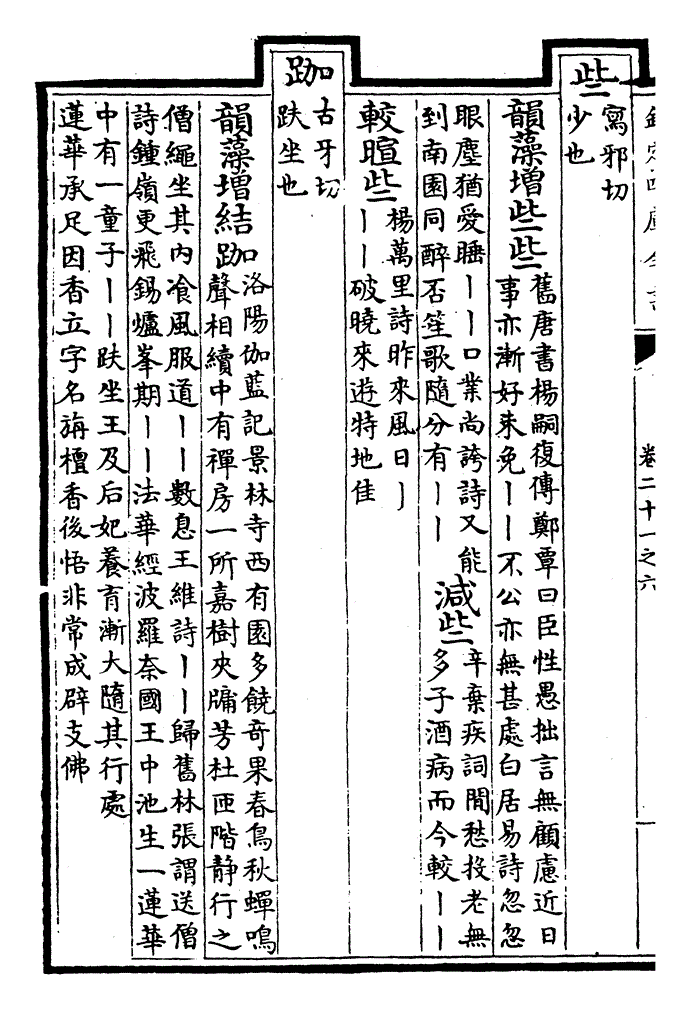 欽定四庫全書
卷二十一之六
些
寫邪切
少也
韻藻增些些
舊唐書楊嗣復傳鄭覃曰臣性愚拙言無顧慮近日
事亦漸好未免丨丨不公亦無甚處白居易詩忽忽
眼塵猶愛睡丨丨口業尚誇詩又能
到南園同醉否笙歌隨分有丨丨
減些
辛棄疾詞閒愁投老無
多子酒病而今較丨丨
較暄些
楊萬里詩昨來風日丨
丨丨破曉來遊特地佳
跏
古牙切
趺坐也
韻藻增結跏
洛陽伽藍記景林寺西有園多饒奇果春鳥秋蟬鳴
聲相續中有禪房一所嘉樹夾牗芳杜匝階静行之
僧繩坐其内飡風服道丨丨數息王維詩丨丨歸舊林張謂送僧
詩鐘嶺更飛錫爐峯期丨丨法華經波羅奈國王中池生一蓮華
中有一童子丨丨趺坐王及后妃養育漸大隨其行處
蓮華承足因香立字名旃檀香後悟非常成辟支佛